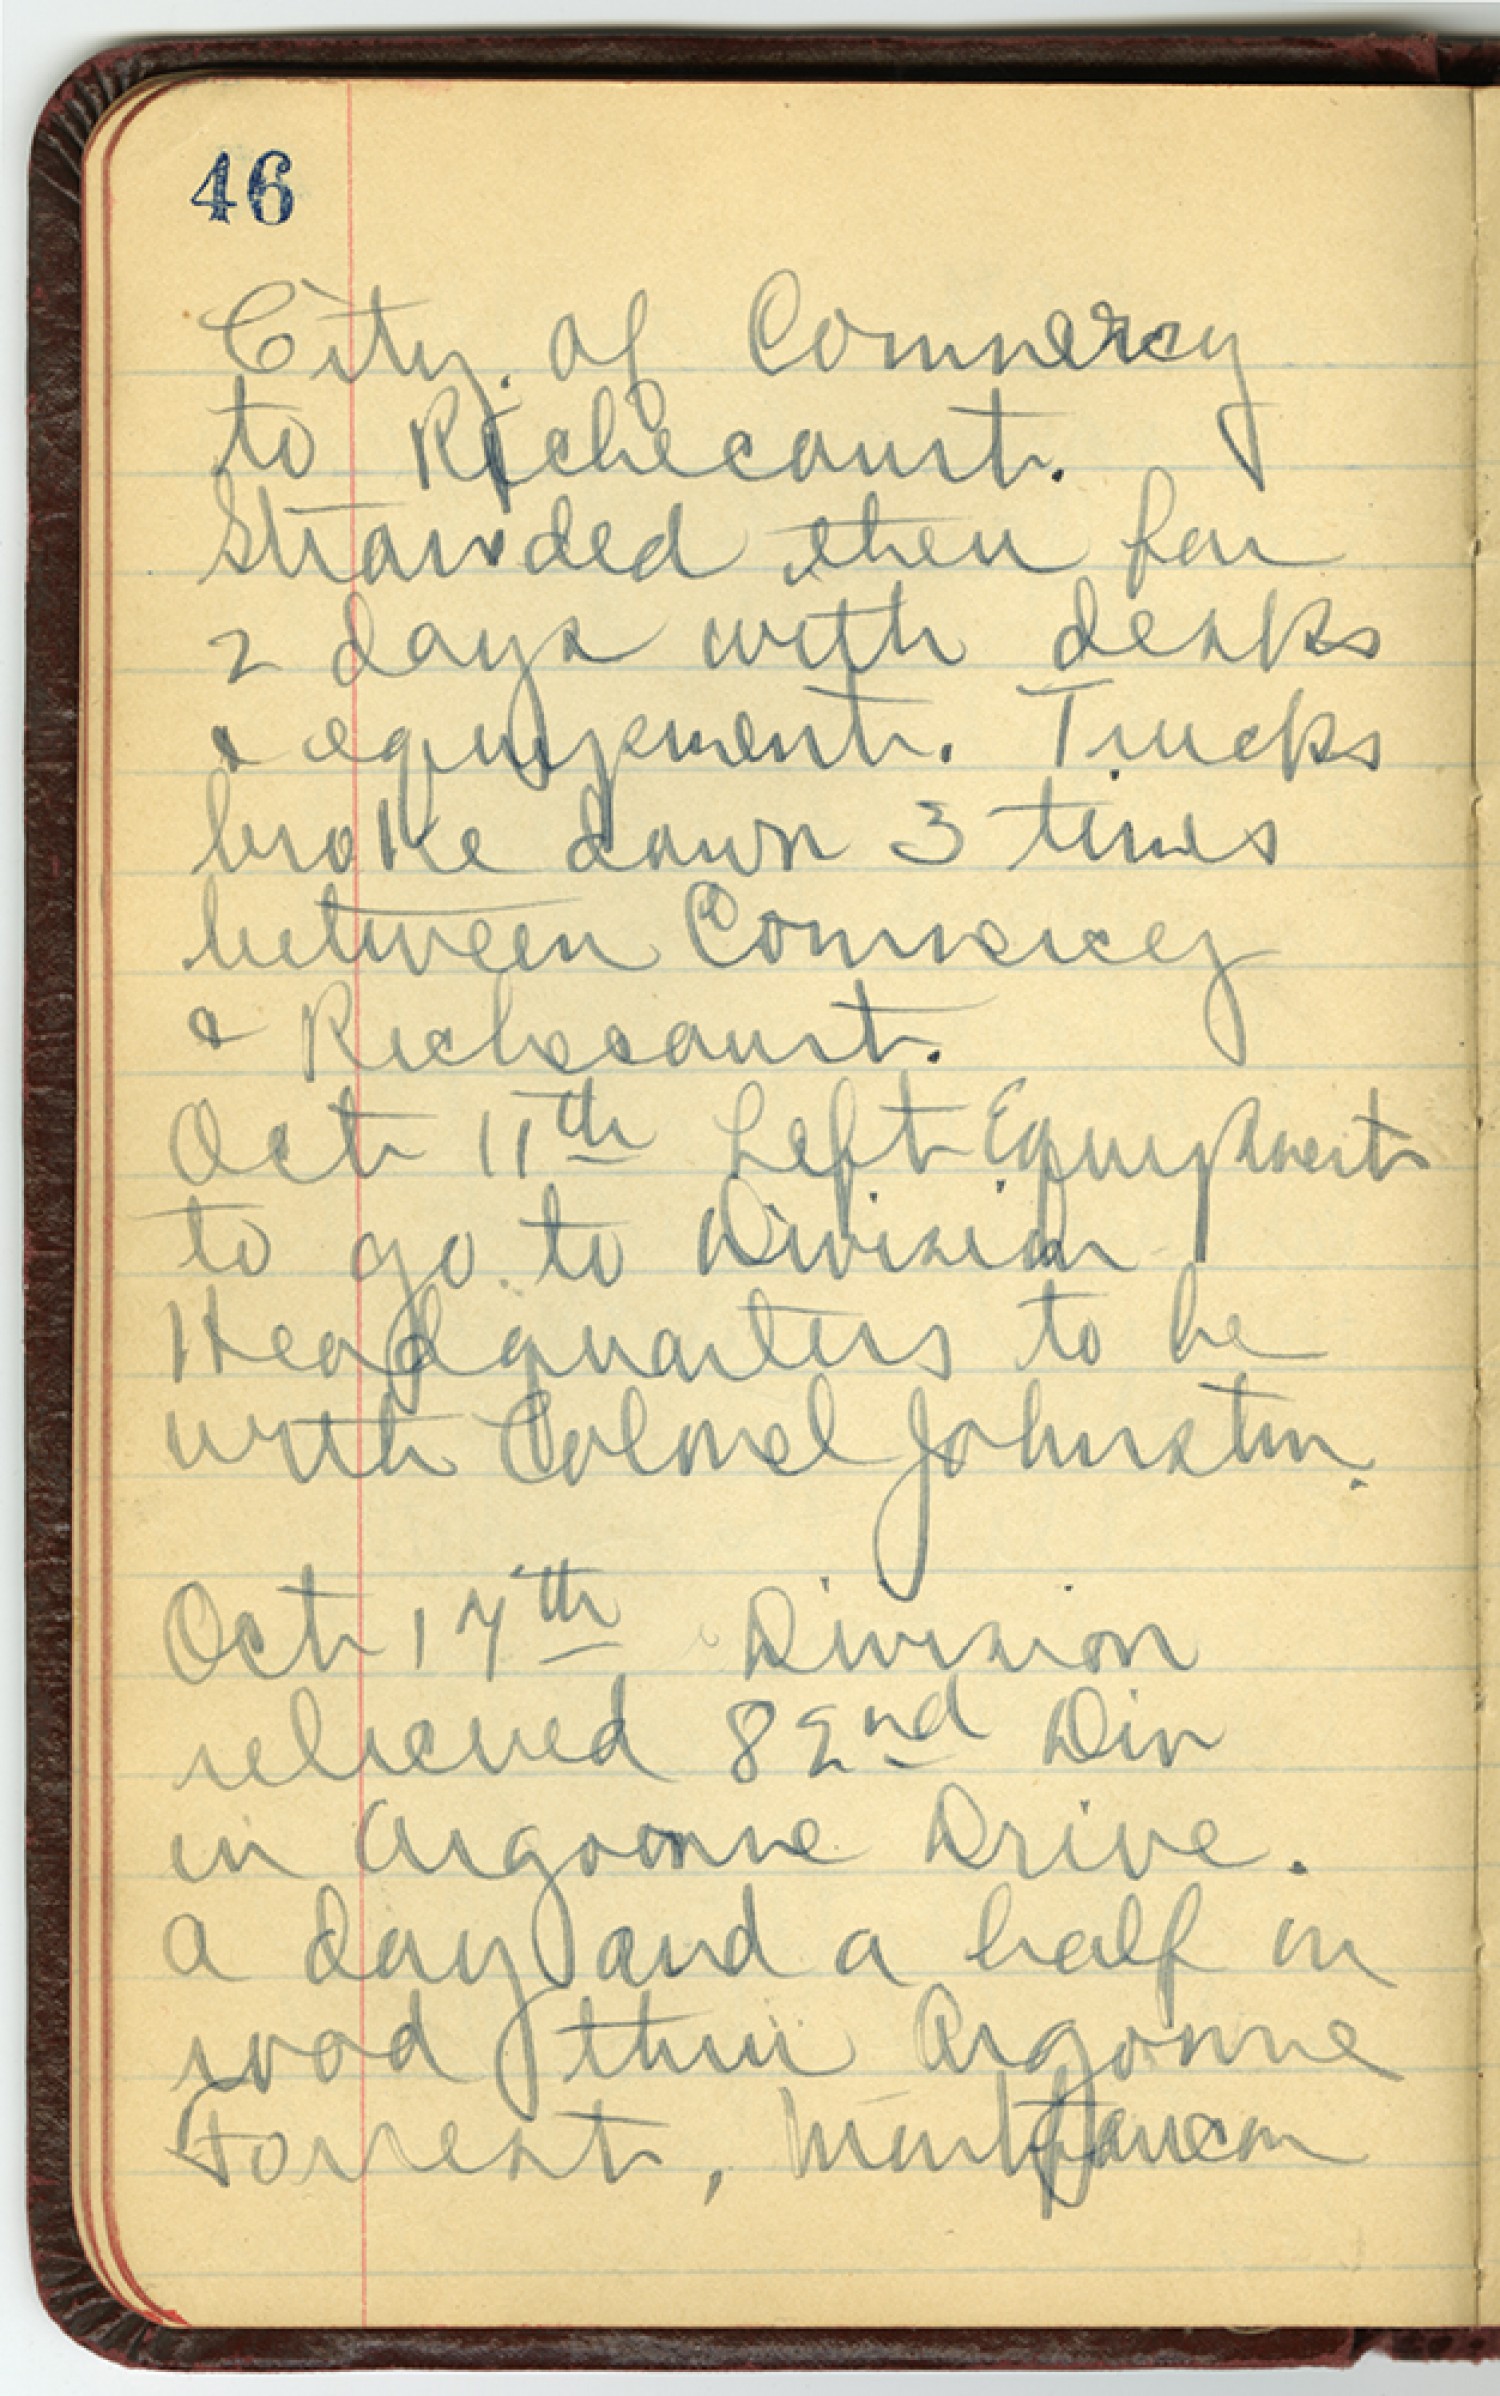 46
City of Commercy
to Richecourt.
Stranded then for
2 days with desks
& equipment. Trucks
broke down 3 times
between Commercy
& Richecourt.
Oct 11th Left Equipment
to go to Division
Headquarters to be
with Colonel Johnston.
Oct 17th Division
relieved 82nd Div
in Argonne Drive.
a day and a half on
road thru Argonne
Forrest, Montfaucon